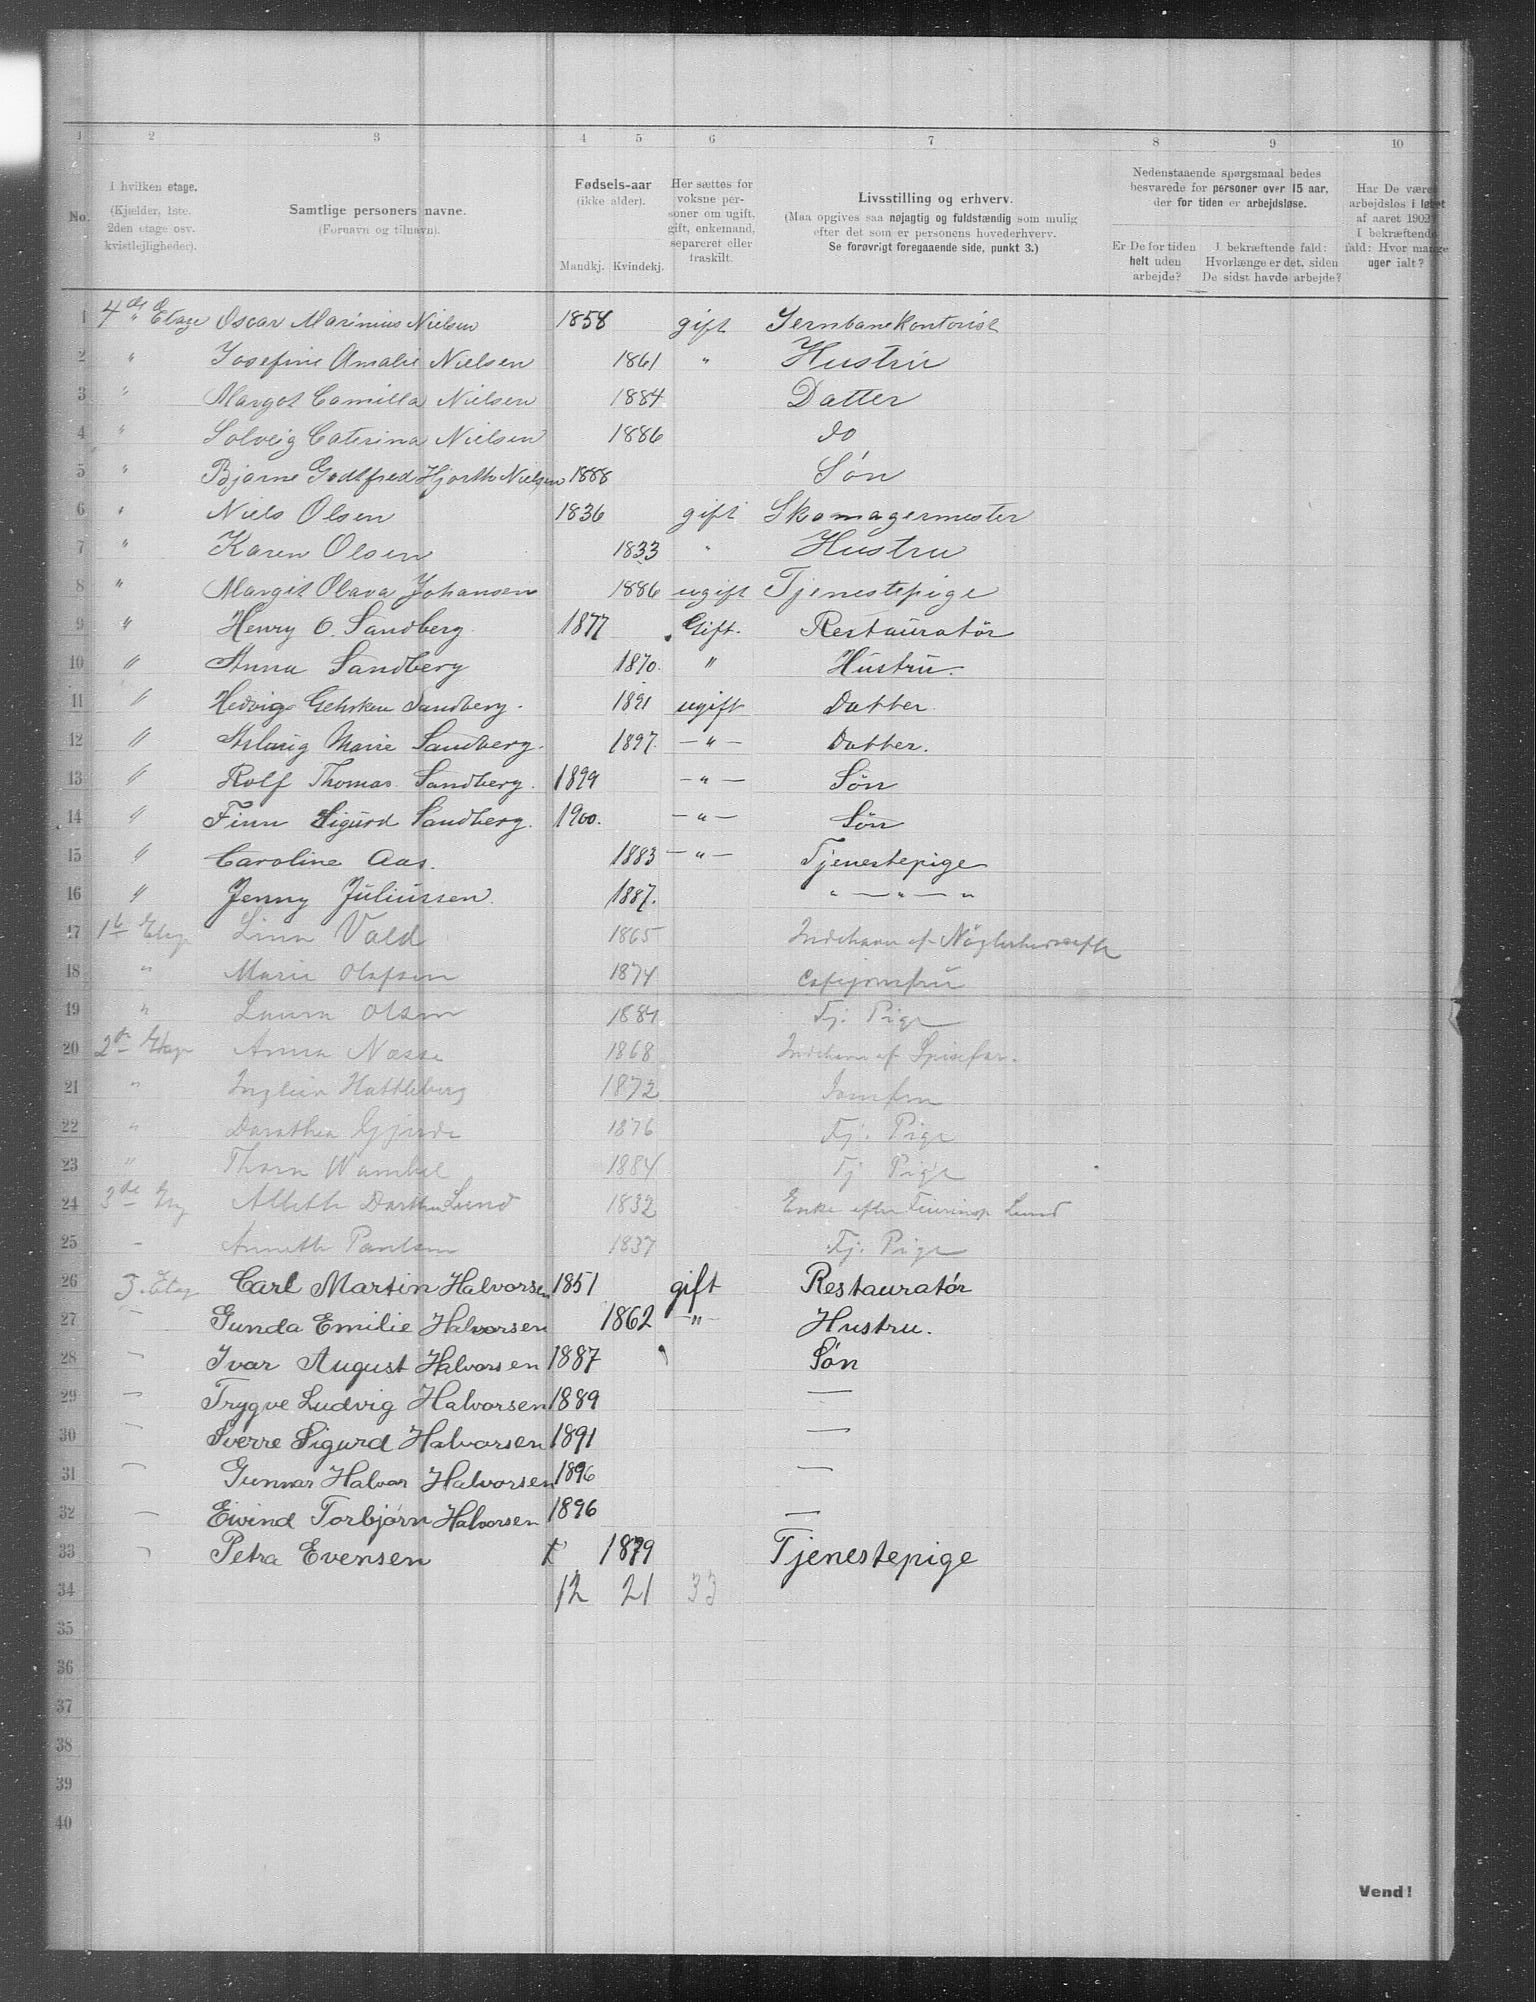 1 2 3 4 5 6 7 8 9 10
No.
I hvilken etage.
(Kjælder, 1ste, 2den etage osv. kvistlejligheder).
Samtlige personers navne.
(Fornavn og tilnavn).
Fødsels-aar
(ikke alder).
Mandkj. Kvindekj.
Her sættes for voksne personer om ugift, gift, enkemand, separeret eller fraskilt.
Livsstilling og erhverv.
(Maa opgives saa nøjagtig og fuldstændig som mulig efter det som er personens hovederhverv.
Se forøvrigt foregaaende side, punkt 3.)
Nedenstaaende spørgsmaal bedes besvarede for personer over 15 aar, der for tiden er arbejdsløse.
Er De for tiden helt uden arbejde?
I bekræftende fald: Hvorlænge er det, siden De sidst havde arbejde?
Har De været arbejdsløs i løbet af aaret 1902? I bekræftende fald: Hvor mange uger ialt?
1 4de Etage Oscar Marinius Nielsen 1858 gift Jernbanekontorist
2 " Josefine Amalie Nielsen 1861 " Hustru
3 " Margot Camilla Nielsen 1884 Datter
4 " Solveig Caterina Nielsen 1886 do
5 " Bjarne Godtfred Hjorth Nielsen 1888 Søn
6 " Niels Olsen 1836 gift Skomagermester
7 " Karen Olsen 1833 " Hustru
8 " Margit Olava Johansen 1886 ugift Tjenestepige
9 " Henry O. Sandberg 1877 Gift. Restauratør
10 " Anna Sandberg 1870. " Hustru.
11 " Hedvig Sandberg. 1891 ugift Datter.
12 " Aslaug Marie Sandberg. 1897. — " — Datter.
13 " Rolf Thomas Sandberg. 1899 — " — Søn
14 " Finn Sigurd Sandberg. 1900. — " — Søn
15 " Caroline Aas. 1883 — " — Tjenestepige
16 " Jenny Juliussen. 1887. " — " — "
17 1ste Etage Linn Vold 1865 Indehaver af
18 " Marie Olafsen 1874 Cafejomfru
19 " Laura Olsen 1884 Tj. Pige
20 2den Etage Anna Næsse 1868 Indehaver af
21 " Hattleberg 1872 Jomfru
22 " Dorothea Gjerde 1876 Tj. Pige
23 " Thora 1884 Tj Pige
24 3de Etg Lund 1832 Enke efter Lund
25 - Paulsen 1837 Tj. Pige
26 3. Etag Carl Martin Halvorsen 1851 gift Restauratør
27 — Gunda Emilie Halvorsen 1862 — " — Hustru.
28 — Ivar August Halvorsen 1887 Søn
29 — Trygve Ludvig Halvorsen 1889 —
30 — Sverre Sigurd Halvorsen 1891 —
31 — Gunnar Halvor Halvorsen 1896 —
32 — Eivind Torbjørn Halvorsen 1896 —
33 — Petra Evensen 1879 Tjenestepige
34 12 21 33
35
36
37
38
39
40
Vend!